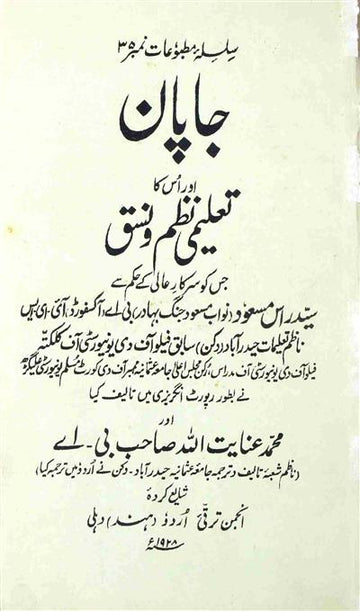 سلسلۂ مطبوعات نمبر ۳۵
جاپان
اور اُس کا
تعلیمی نظم و نسق
جس کو سرکار عالی کے حکم سے
سیّد راس مسعود (نواب مسعود جنگ بہادر) بی۔اے (آکسفورڈ) آئی۔ای۔ایس
ناظم تعلیمات حیدرآباد (دکن) سابق فیلو آف دی یونیورسٹی آف کلکتہ
فیلو آف دی یونیورسٹی آف مدراس رُکن مجلس اعلیٰ جامعۂ عثمانیہ ممبر آف دی کورٹ مُسلم یونیورسٹی علیگڑھ
نے بطور رپورٹ انگریزی میں تالیف کیا
اور
محمد عنایت اللہ صاحب بی۔ اے
(ناظم شعبۂ تالیف و ترجمہ جامعۂ عثمانیہ حیدرآباد۔ دکن نے اُردو میں ترجمہ کیا)
شایع کردہ
انجمن ترقّیٔ اُردو (ہند) دہلی
۱۹۲۸ء